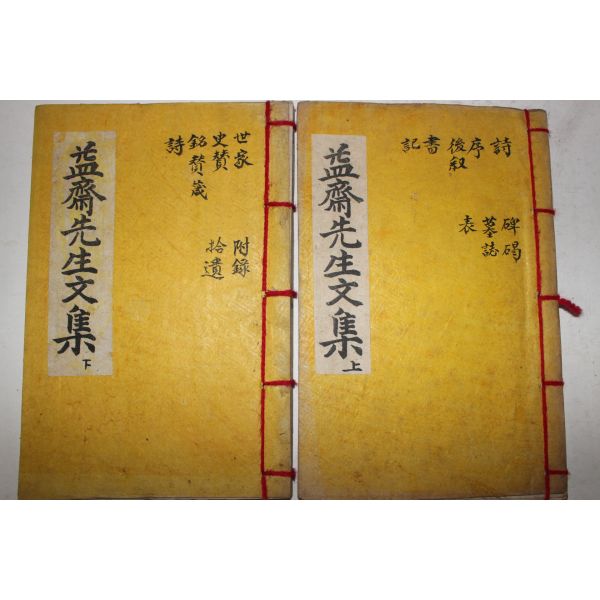 詩
序
後叙
書
記
碑碣
墓誌
表
益齋先生文集 上
世家
史賛
銘賛箴
詩
附錄
拾遺
益齋先生文集 下